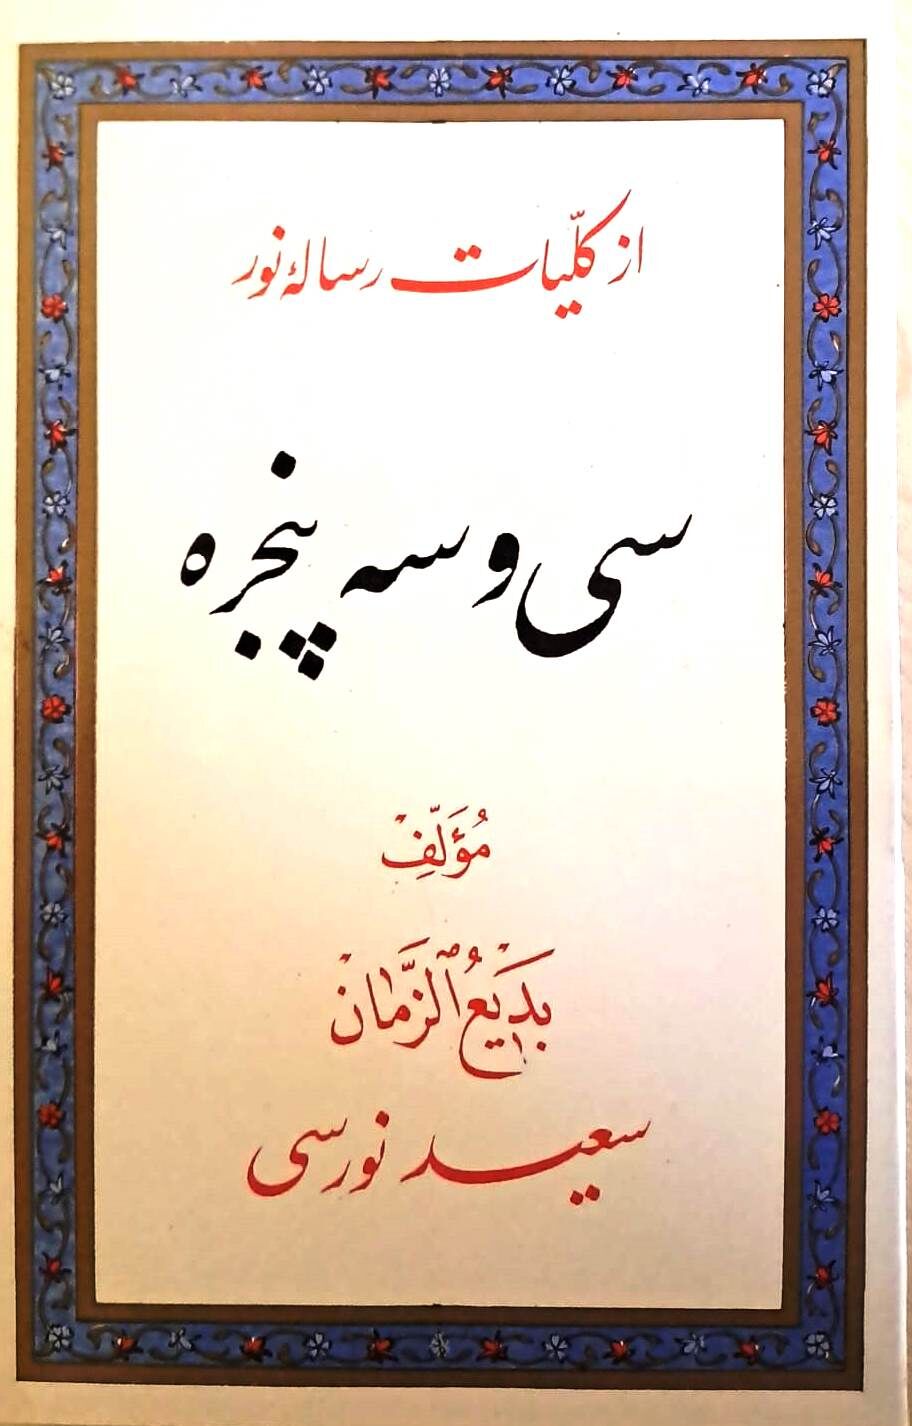 از کلّیات رسالهٔ نور
سی و سه پنجره
مُؤَلِّفْ
بَدیعُ الزَّمان
سعید نورسی